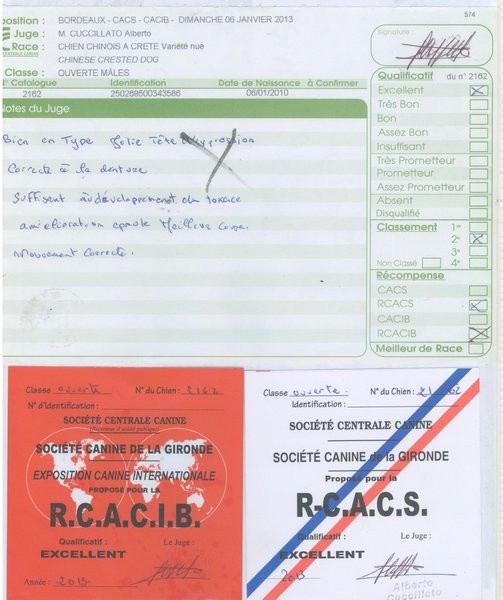 574
position : BORDEAUX - CACS - CACIB - DIMANCHE 06 JANVIER 2013
Juge : M. CUCCILLATO Alberto
Race : CHIEN CHINOIS A CRETE Variété nue
CENTRALE CANINE CHINESE CRESTED DOG
Classe : OUVERTE MÂLES
N° Catalogue Identification Date de Naissance à Confirmer
2162 250269500343586 06/01/2010
Notes du Juge
Bien en Type Jolie Tête expression
Correcte à la denture
Suffisent au développement du torace
amélioration épaule Meilleur
Mouvement Correcte.
Signature :
Qualificatif du n° 2162
Excellent
Très Bon
Bon
Assez Bon
Insuffisant
Très Prometteur
Prometteur
Assez Prometteur
Absent
Disqualifié
Classement 1er
2e
3e
Non Classé 4e
Récompense
CACS
RCACS
CACIB
RCACIB
Meilleur de Race
Classe ouverte N° du Chien : 2162
N° d'Identification :
SOCIÉTÉ CENTRALE CANINE
(Reconnue d'utilité publique)
SOCIÉTÉ CANINE DE LA GIRONDE
EXPOSITION CANINE INTERNATIONALE
PROPOSÉ POUR LA
R.C.A.C.I.B.
Qualificatif : Le Juge :
EXCELLENT
Année : 2013
Classe ouverte N° du Chien : 2162
N° Identification :
SOCIÉTÉ CENTRALE CANINE
SOCIÉTÉ CANINE DE LA GIRONDE
Proposé pour la
R-C.A.C.S.
Qualificatif : Le Juge :
EXCELLENT
2013
Alberto
Cuccillato